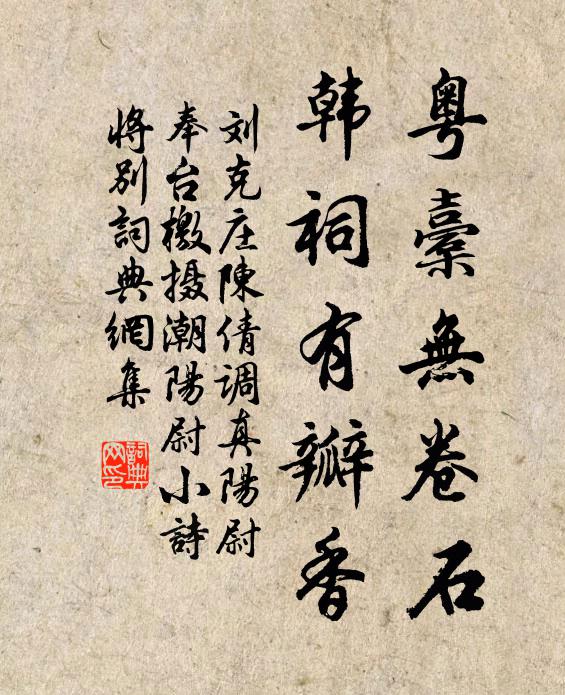 粤橐無卷石
韩祠有瓣香
刘克庄陳倩調真陽尉
奉台檄摄潮陽尉小詩
将别詞典網集
詞典網印